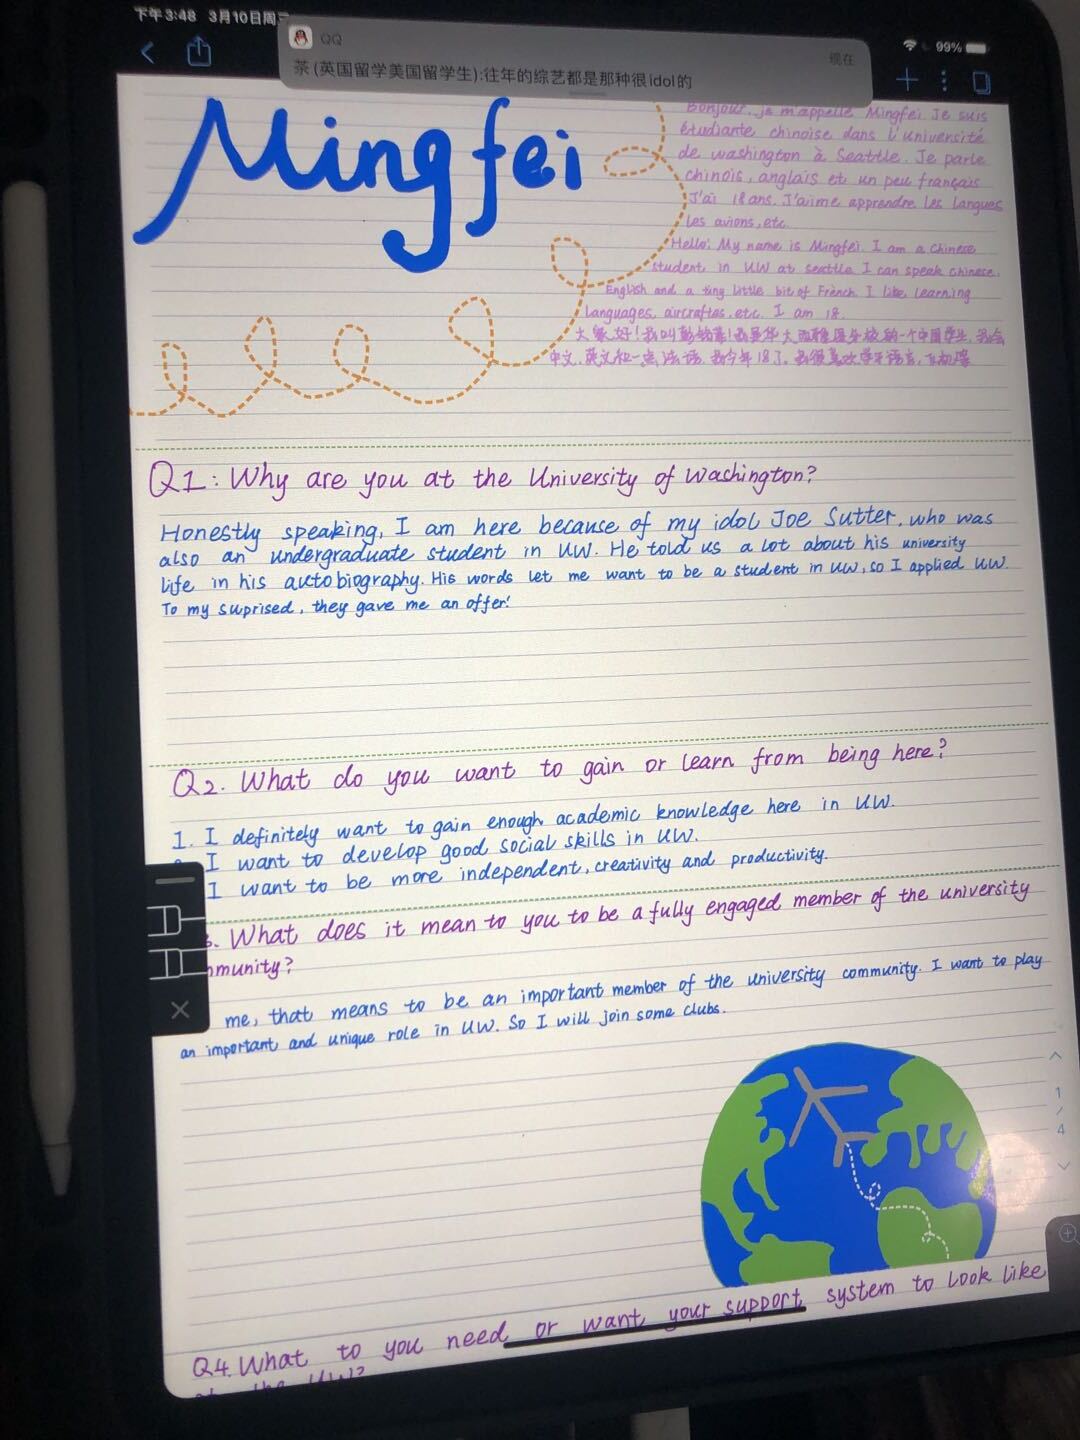 下午3:48 3月10日周三
QQ
现在
99%
茶(英国留学美国留学生):往年的综艺都是那种很idol的
Mingfei
Bonjour, je m'appelle Mingfei. Je suis
étudiante chinoise dans l'université
de washington à Seattle. Je parle
chinois, anglais et un peu français
J'ai 18 ans. J'aime apprendre les langues
les avions, etc.
Hello! My name is Mingfei. I am a Chinese
student in UW at seattle. I can speak chinese.
English and a tiny little bit of French. I like learning
languages, aircraftes, etc. I am 18.
大家好!我叫 我是华大西雅图分校的一个中国学生,我会
中文,英文和一点法语,我今年18了。我很喜欢学习语言,飞机等
Q1: Why are you at the University of Washington?
Honestly speaking, I am here because of my idol Joe Sutter, who was
also an undergraduate student in UW. He told us a lot about his university
life in his autobiography. His words let me want to be a student in UW, so I applied UW.
To my suprised, they gave me an offer!
Q2. What do you want to gain or learn from being here?
1. I definitely want to gain enough academic knowledge here in UW.
I want to develop good social skills in UW.
I want to be more independent, creativity and productivity.
3. What does it mean to you to be a fully engaged member of the university
mmunity?
me, that means to be an important member of the university community. I want to play
an important and unique role in UW. So I will join some clubs.
1
/
4
Q4. What to you need or want your support system to look like
at the UW?